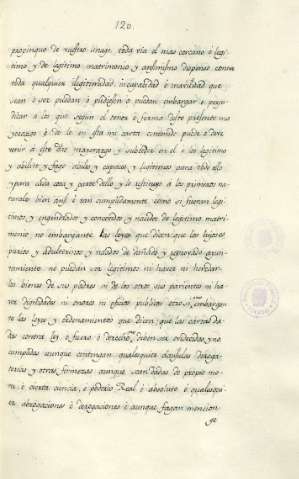 120
propinquo de vuestro linage toda via el mas cercano é legi-
timo, y de legitimo matrimonio y asimismo dispenso contra
toda qualquier ilegitimidad, incapacidad é inavilidad que
sean ó ser puedan á pudiesen ó puedan embargar é perju-
dicar a los que segun el tenor é forma deste presente ma-
yorazgo é de lo en esta mi carta contenido pueda é deve
venir á este dho mayorazgo, y subceder en el é los legitimo
y abilito y hago abiles y capaces, y legitimos para todo ello
y para cada cosa y parte dello y á restituyo a los primeros na-
turales bien asi é tan cumplidamente como si fueran legi-
timos, y engendrados y concevidos y nacidos de legitimo matri-
monio no embargante las leyes que dicen que los hijos es-
purios y adulterinos y nacidos de dañado y reprovado ayun-
tamiento no puedan ser legitimos ni haver ni heredar
los bienes de sus padres ni de los otros sus parientes ni ha-
ver dignidades ni onores ni oficios publicos otro si, embargan-
te las leyes y ordenamientos que dicen: que las cartas da-
das contra ley ó fuero é derecho, deben ser ovedecidas y no
cumplidas aunque contengan qualesquier clausulas deroga-
torias y otras firmezas aunque sean dadas de propio mo-
tu é cierta ciencia, é poderio Real é absoluto é qualesquie-
ra abrogaciones é derogaciones é aunque fagan mencion